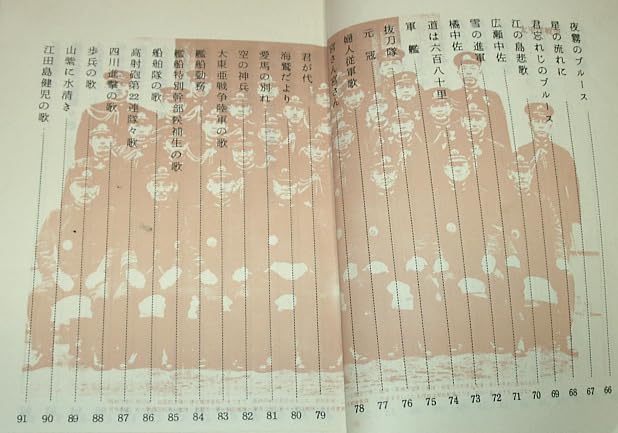 夜霧のブルース 66
星の流れに 67
君忘れじのブルース 68
江の島悲歌 69
広瀬中佐 70
雪の進軍 71
橘中佐 72
道は六百八十里 73
軍艦 74
抜刀隊 75
元冠 76
婦人従軍歌 77
宮さん宮さん 78
君が代 79
海鷲だより 80
愛馬の別れ 81
空の神兵 82
大東亜戦争陸軍の歌 83
艦船勤務 84
艦船特別幹部候補生の歌 85
船舶隊の歌 86
高射砲第22連隊々歌 87
四川進撃の歌 88
歩兵の歌 89
山紫に水清き 90
江田島健児の歌 91